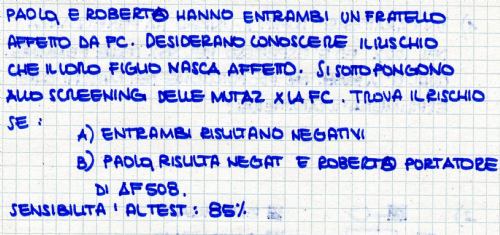 PAOLA E ROBERTO HANNO ENTRAMBI UN FRATELLO
AFFETTO DA FC. DESIDERANO CONOSCERE IL RISCHIO
CHE IL LORO FIGLIO NASCA AFFETTO. SI SOTTOPONGONO
ALLO SCREENING DELLE MUTAZ X LA FC. TROVA IL RISCHIO
SE:
A) ENTRAMBI RISULTANO NEGATIVI
B) PAOLA RISULTA NEGAT E ROBERTO PORTATORE
DI ΔF508.
SENSIBILITA' AL TEST: 85%